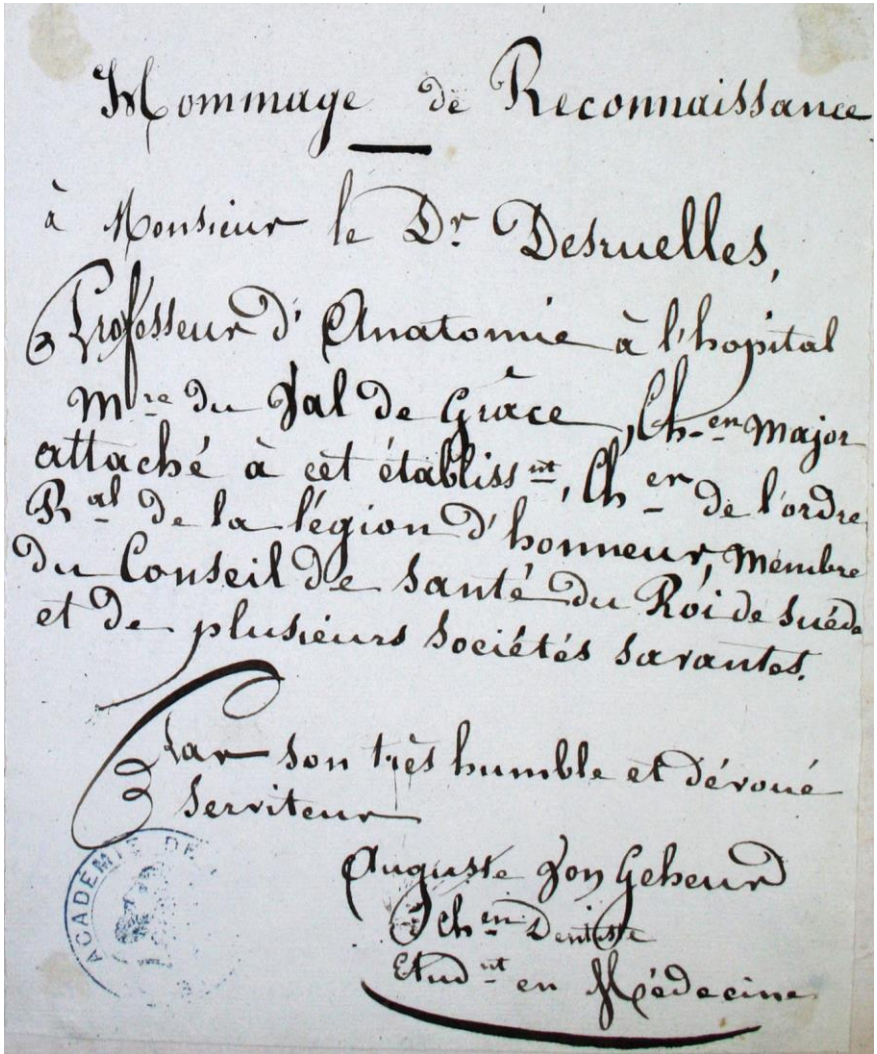 Hommage de Reconnaissance
à Monsieur le Dr Desruelles,
Professeur d'Anatomie à l'hopital
Mre du Val de Grâce, Ch-en Major
attaché à cet établissnt, Cher de l'ordre
Ral de la légion d'honneur, Membre
du Conseil de Santé du Roi de Suéde
et de plusieurs Sociétés Savantes.
Par Son très humble et dévoué
Serviteur
Auguste
Chen Dentiste
Etudnt en Médecine
ACADÉMIE DE